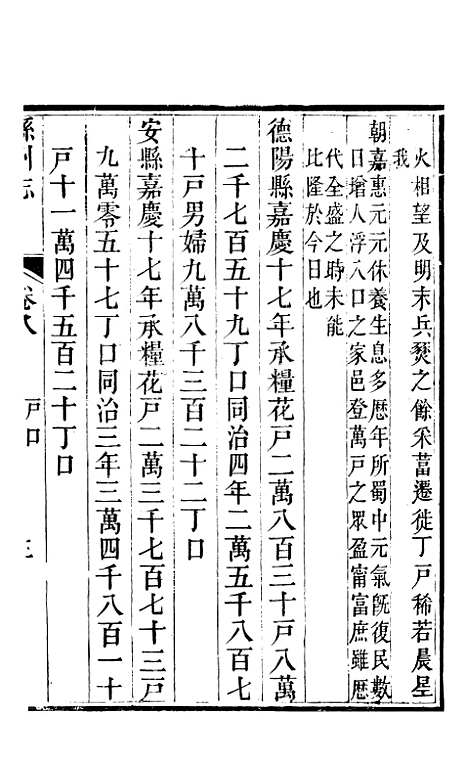 火相望及明末兵燹之餘采葍遷徙丁戸稀若晨星
我
朝嘉惠元元休養生息多歷年所蜀中元氣旣復民數
日增人浮入口之家邑登萬戸之眾盈甯富庶雖歷
代全盛之時未能
比隆於今日也
德陽縣嘉慶十七年承糧花戸二萬八百三十戸八萬
二千七百五十九丁口同治四年二萬五千八百七
十戸男婦九萬八千三百二十二丁口
安縣嘉慶十七年承糧花戸二萬三千七百七十三戸
九萬零五十七丁口同治三年三萬四千八百一十
戸十一萬四千五百二十丁口
緜州志
卷八
戸口
三